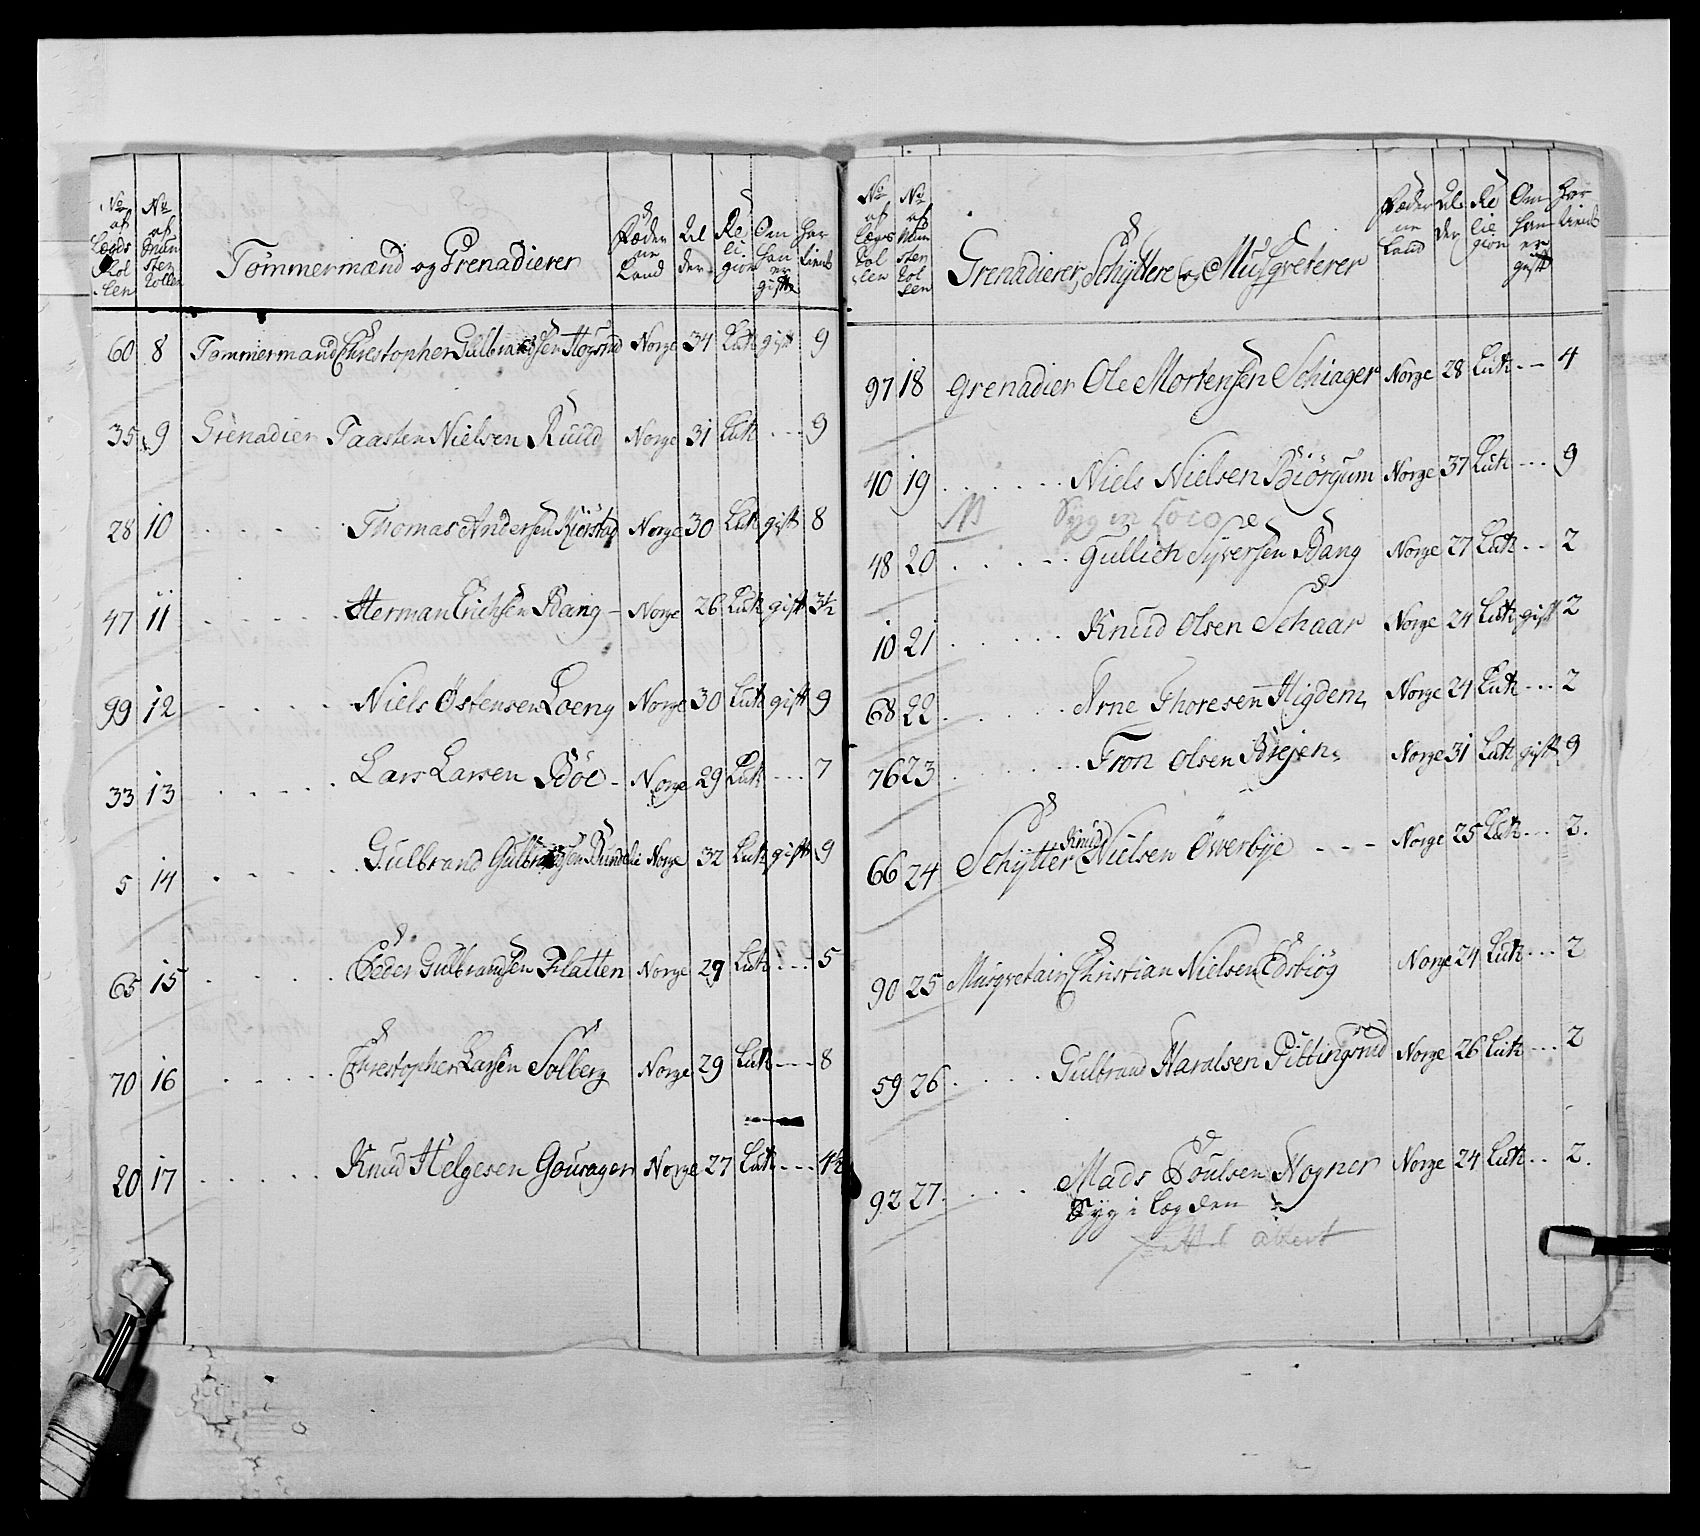 No af Lægds Rollen
No af Mun ster Rollen
Tømmermænd og Grenadierer
Fæder ne Land
Al der
Re li gion
Om han er gift
har tient
60 8 Tømmermand Christopher Gulbrandsen Høgsrud Norge 34 Luth gift 9
35 9 Grenadier Taasten Nielsen Ruud Norge 31 Luth --- 9
28 10 . . . . . Thomas Andersen Kiørstad Norge 30 Luth gift 8
47 11 . . . . . Herman Erichsen Bang - Norge 26 Luth gift 3½
99 12 . . . . . Niels Østensen Loeng Norge 30 Luth gift 9
33 13 . . . . . Lars Larsen Bøe - Norge 29 Luth --- 7
5 14 . . . . . Gulbrand Gulbrandsen Norge 32 Luth gift 9
65 15 . . . . . Peder Gulbrandsen Flatten Norge 29 Luth --- 5
70 16 . . . . . Christopher Larsen Solberg Norge 29 Luth --- 8
20 17 . . . . . Knud Helgesen Gouragen Norge 27 Luth ---
No af Lægds Rol len
No af Mun ster Rol len
Grenadierer, Schyttere og Musqveterer
Fæder ne Land
Al der
Re lie gion
Om han er gift
har tient
97 18 Grenadier Ole Mortensen Schiager Norge 28 Luth -- 4
40 19 . . . . . . Niels Nielsen Biørgum Norge 37 Luth --- 9
Syg in Loco
48 20 . . . . . Gullich Syversen Bang Norge 27 Luth -- 2
10 21 . . . . . Knud Olsen Schaar Norge 24 Luth gift 2
68 22 . . . . . Arne Thoresen Higdem Norge 24 Luth --- 2
76 23 . . . . . Tron Olsen Biejen Norge 31 Luth gift 9
66 24 Schytter Knud Nielsen Øverbye --- Norge 25 Luth --- 2.
90 25 Musqvetair Christian Nielsen Norge 24 Luth --- 2
59 26 . . . . Gulbrand Haralsen Pittingsrud Norge 26 Luth --- 2
92 27 . . . . Mads Poulsen Hogner Norge 24 Luth -- 2.
Syg i Lægden